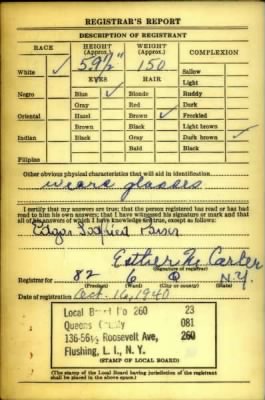 REGISTRAR'S REPORT
DESCRIPTION OF REGISTRANT
RACE HEIGHT (Approx.) WEIGHT (Approx.) COMPLEXION
White ✓ 5 9½" 150 Sallow
EYES HAIR Light
Negro Blue ✓ Blonde Ruddy
Gray Red Dark
Oriental Hazel Brown ✓ Freckled
Brown Black Light brown
Indian Black Gray Dark brown ✓
Bald Black
Filipino
Other obvious physical characteristics that will aid in identification
wears glasses
I certify that my answers are true; that the person registered has read or has had
read to him his own answers; that I have witnessed his signature or mark and that
all of his answers of which I have knowledge are true, except as follows:
Edgar
Esther M. Carler
(Signature of registrar)
Registrar for 82 6 Q N.Y.
(Precinct) (Ward) (City or county) (State)
Date of registration Oct. 16, 1940
Local Board No 260 23
Queens County 081
136-56½ Roosevelt Ave, 260
Flushing, L. I., N. Y.
(STAMP OF LOCAL BOARD)
(The stamp of the Local Board having jurisdiction of the registrant
shall be placed in the above space.)